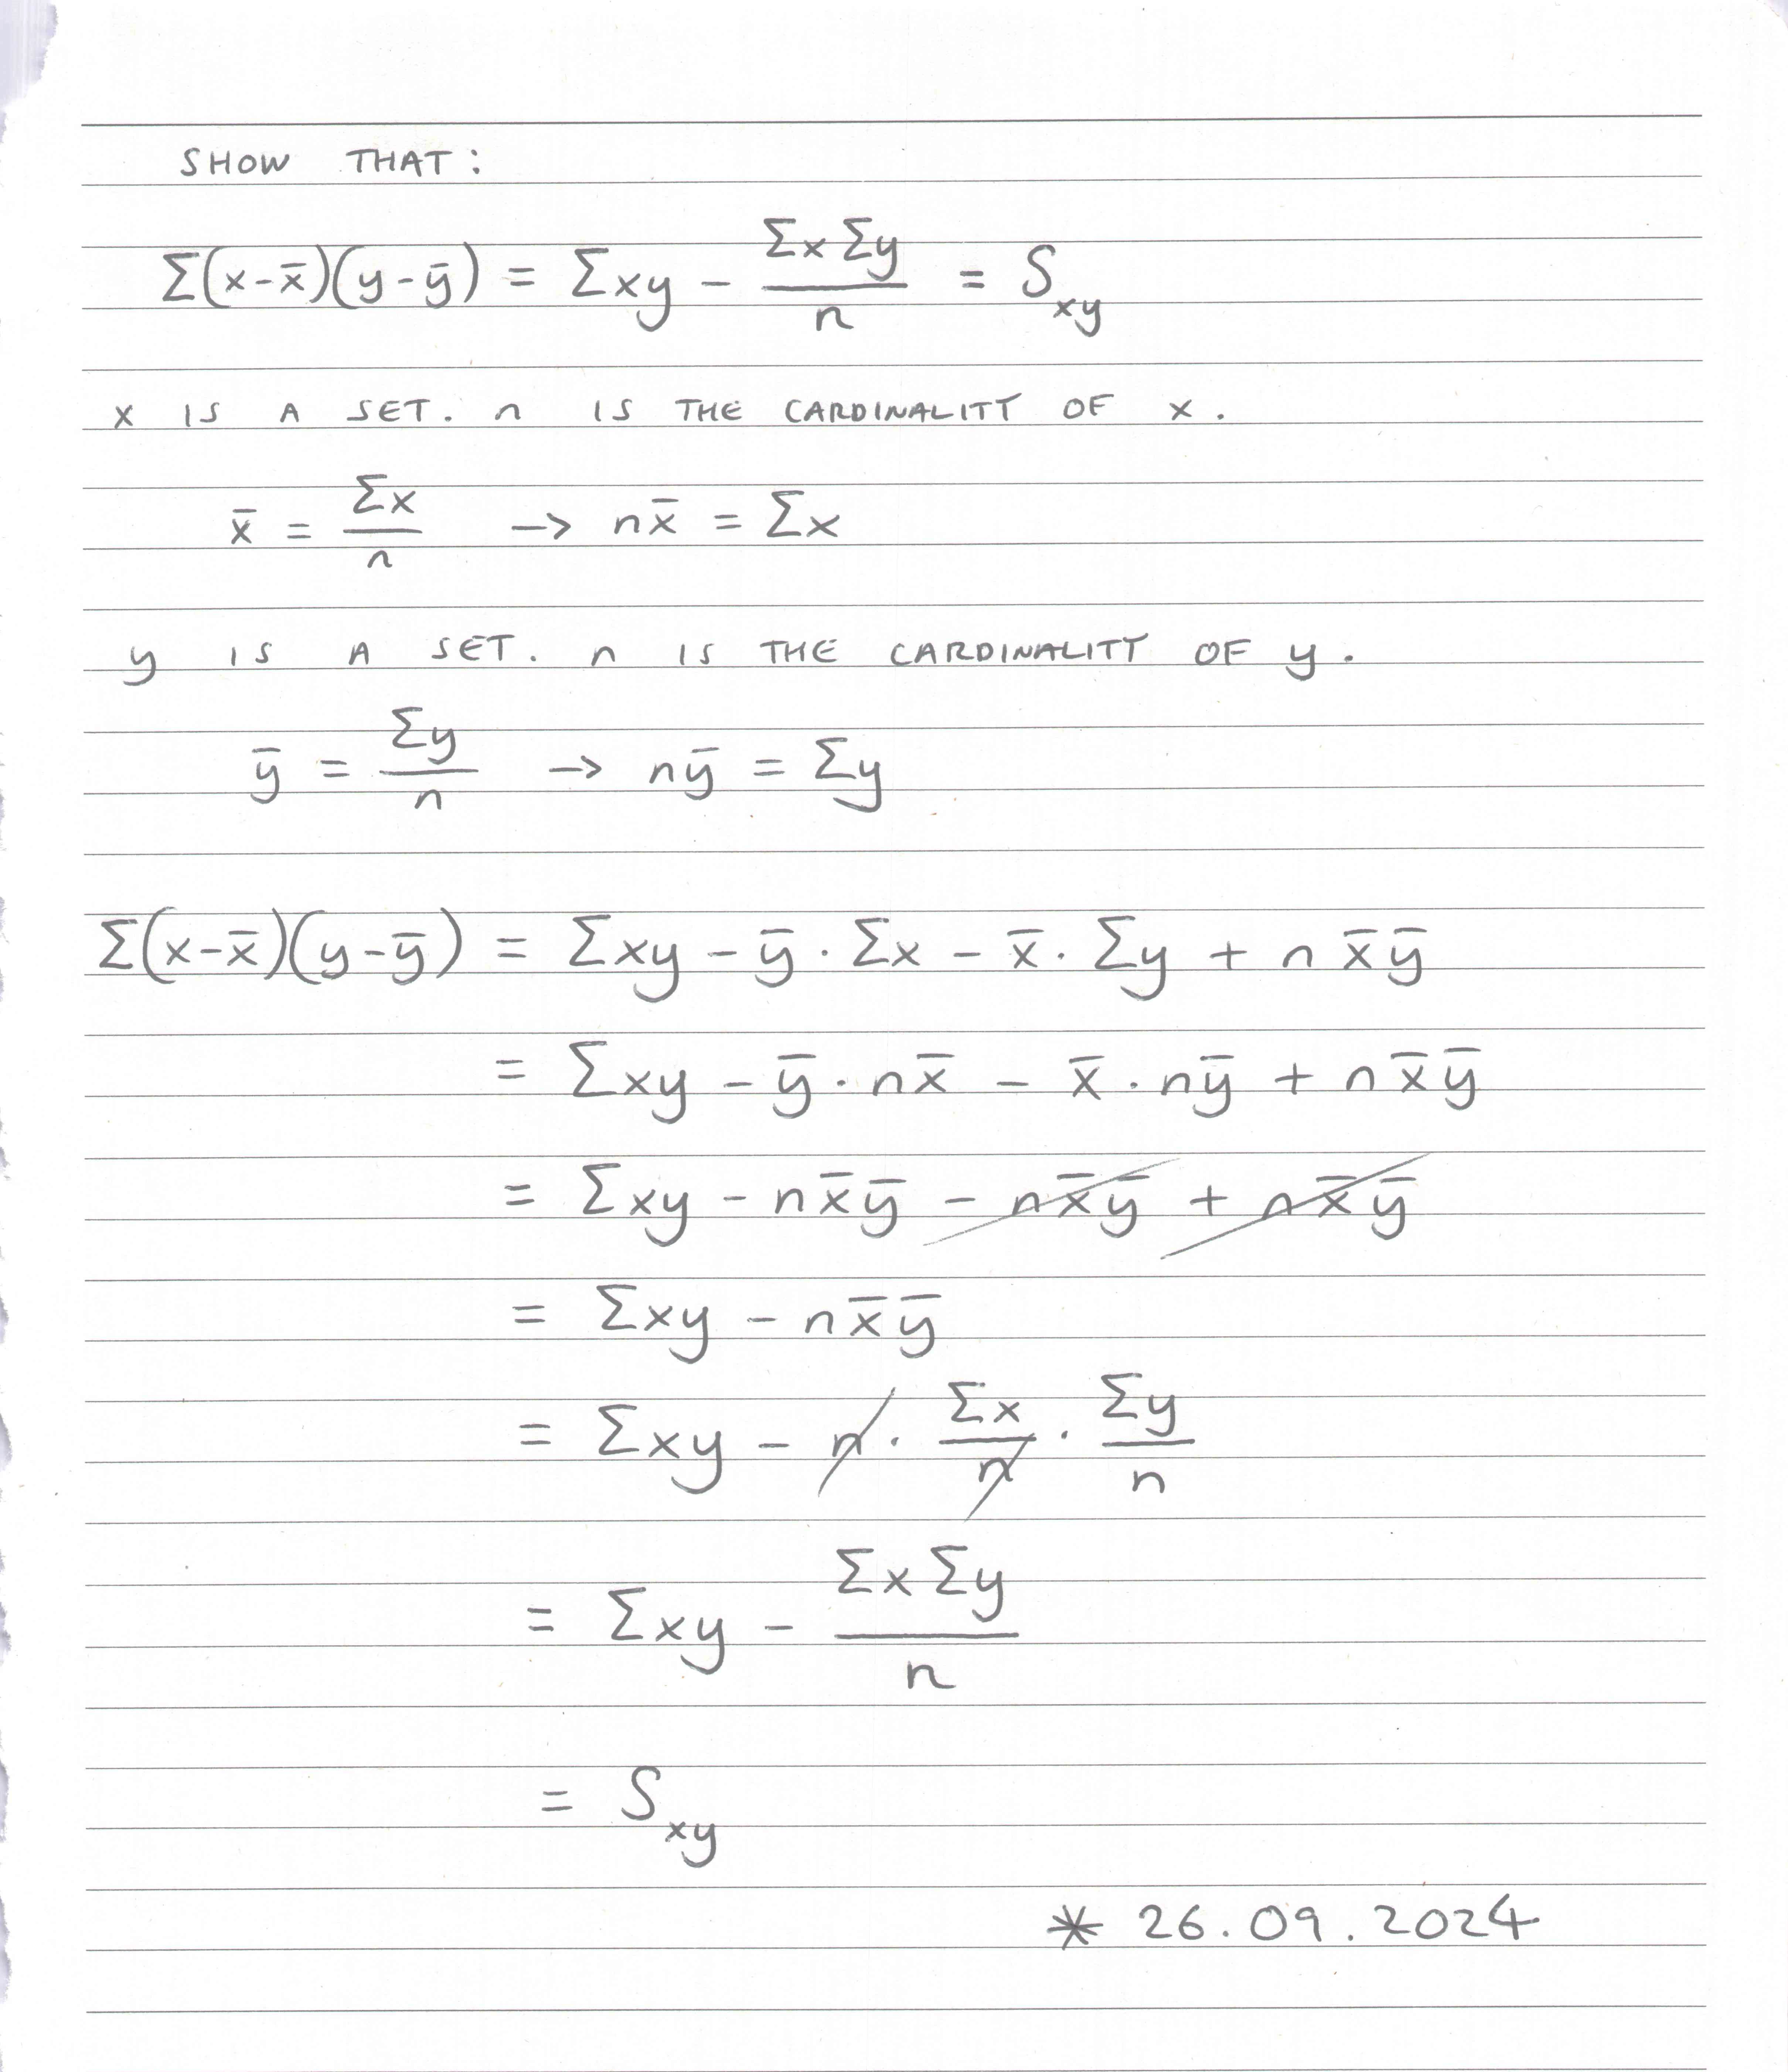 SHOW THAT:
Σ(x-x̄)(y-ȳ) = Σxy - ΣxΣy/n = Sxy
x IS A SET. n IS THE CARDINALITY OF x.
x̄ = Σx/n -> nx̄ = Σx
y IS A SET. n IS THE CARDINALITY OF y.
ȳ = Σy/n -> nȳ = Σy
Σ(x-x̄)(y-ȳ) = Σxy - ȳ·Σx - x̄·Σy + nx̄ȳ
= Σxy - ȳ·nx̄ - x̄·nȳ + nx̄ȳ
= Σxy - nx̄ȳ - nx̄ȳ + nx̄ȳ
= Σxy - nx̄ȳ
= Σxy - n·Σx/n·Σy/n
= Σxy - ΣxΣy/n
= Sxy
* 26.09.2024